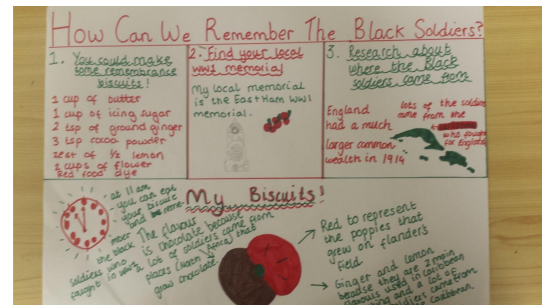 How Can We Remember The Black Soldiers?
1. You could make
some remembrance
biscuits!
1 cup of butter
1 cup of icing sugar
2 tsp of ground ginger
3 tsp cocoa powder
zest of ½ lemon
2 cups of flower
Red food dye
2. Find your local
WW1 memorial
My local memorial
is the East Ham WW1
memorial.
3. Research about
where the Black
soldiers came from
England
had a much
larger common
wealth in 1914
lots of the soldiers
came from the
who fought
for England
My Biscuits!
at 11 am
you can eat
your biscuit
and
the black
soldiers who
fought in WW1
The flavour
is chocolate because
a lot of soldiers came from
places (North Africa) that
grow chocolate
Red to represent
the poppies that
grew on flander's
field
Ginger and lemon
they are 2 main
flavours used in caribbean
and a lot of
soldiers came from
caribbean